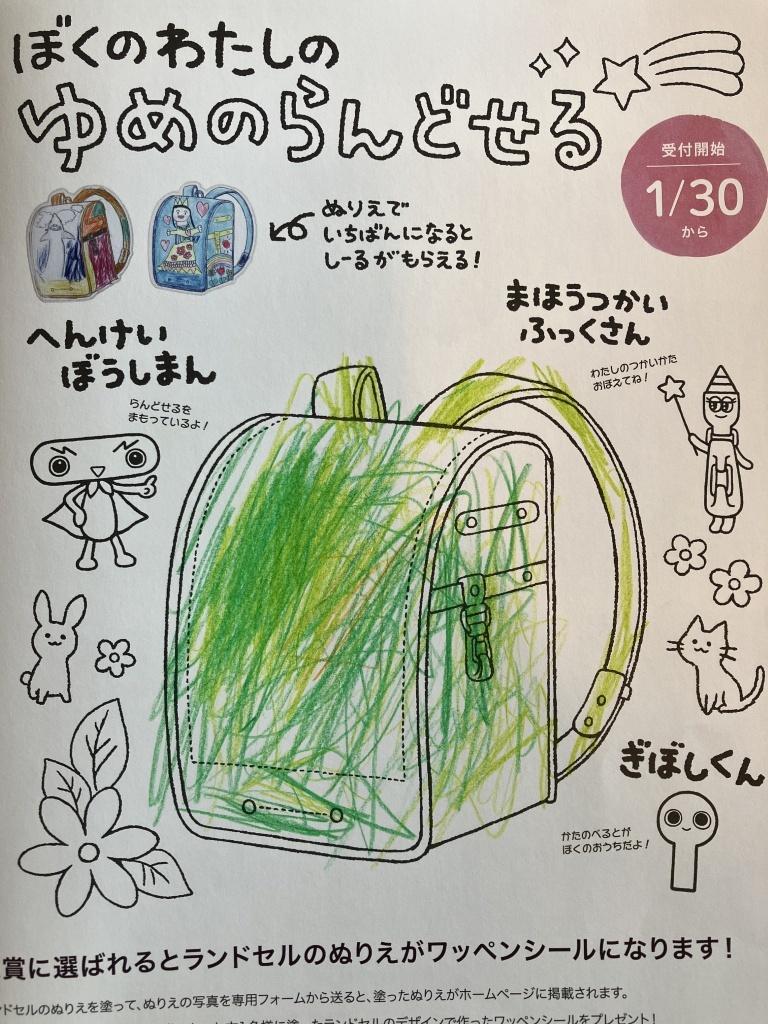 ぼくのわたしの
ゆめのらんどせる
受付開始
1/30
から
ぬりえで
いちばんになると
しーるがもらえる!
へんけい
ぼうしまん
らんどせるを
まもっているよ!
まほうつかい
ふっくさん
わたしのつかいかた
おぼえてね!
ぎぼしくん
かたのべるとが
ぼくのおうちだよ!
賞に選ばれるとランドセルのぬりえがワッペンシールになります!
ドセルのぬりえを塗って、ぬりえの写真を専用フォームから送ると、塗ったぬりえがホームページに掲載されます。
様に塗ったランドセルのデザインで作ったワッペンシールをプレゼント!